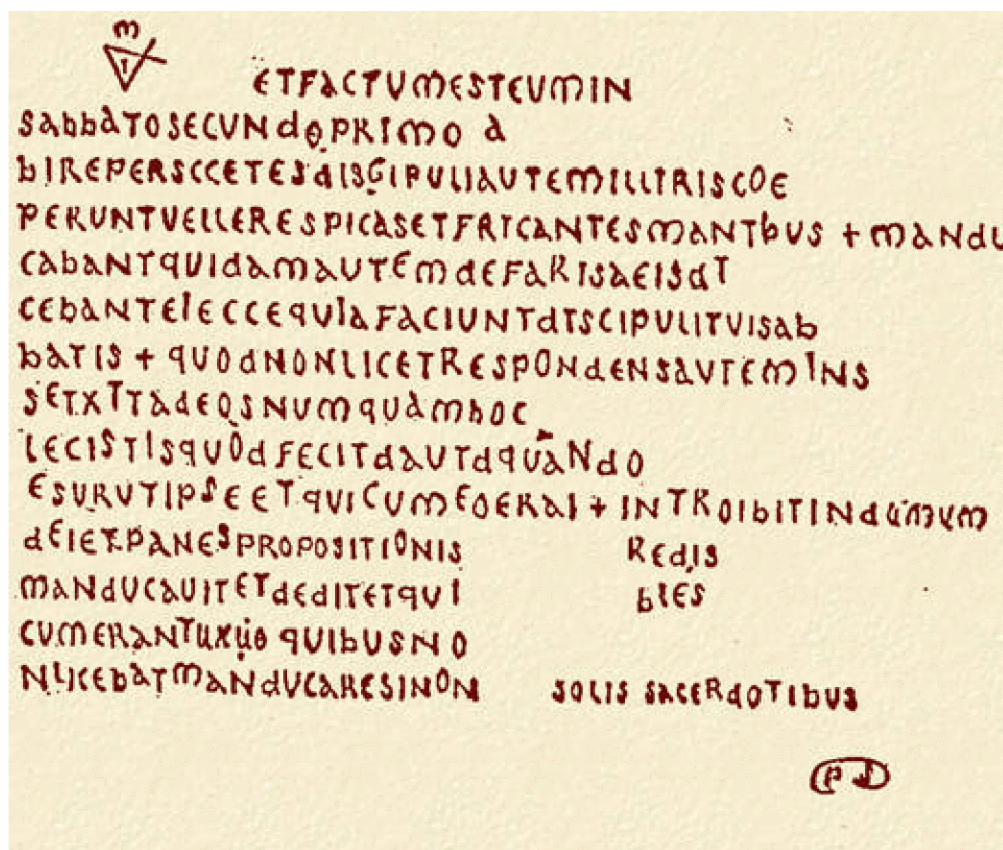 ETFACTUMESTEUMIN
SABBATOSECUNDOPRIMO A
BIREPERSCCETESDISGIPULIAUTEMILLTRISCOE
PERUNTVELLERESPICASETFRTCANTESMANTBUS + MANDU
CABANTQUIDAMAUTEMDEFARISAEISDT
CEBANTEIECCEQUIAFACIUNTDTSCIPULITVISAB
BATIS + QUODNONLICETRESPONDENSAUTEMINS
SETXTTADEOSNUMQUAMHOC
LECISTISQUODFECITDAUTDQUANDO
ESURUTIPSEETQUICUMEOERAI + INTROIBITINDOMUM
DEIETPANESPROPOSITIONIS REDIS
MANDUCAUITETDEDITETQUI BLES
CUMERANTUXUO QUIBUSNO
NLICEBATMANDUCARESINON SOLIS SACERDOTIBUS